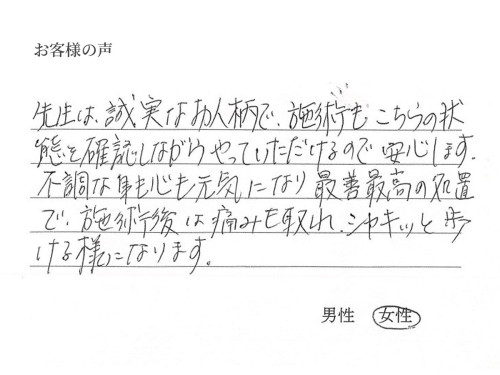 お客様の声
先生は、誠実なお人柄で、施術も こちらの状
態を確認しながらやっていただけるので安心します。
不調な身も心も元気になり最善最高の処置
で、施術後は痛みも取れ、シャキッと歩
ける様になります。
男性 女性